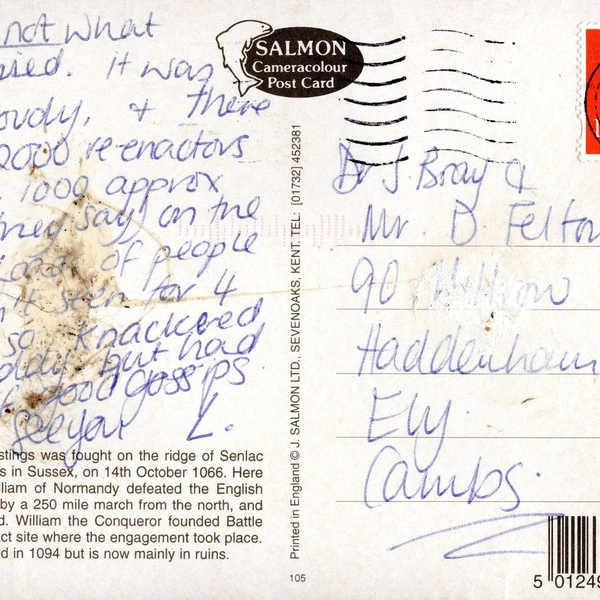 not what
it was
& there
2000 re-enactors
1000 approx
they say, on the
of people
seen for 4
so knackered
but had
good gossips.
Seeya L.
SALMON
Cameracolour
Post Card
Dr J. Bray &
Mr. D Felton
90
Haddenham
Ely.
Cambs.
stings was fought on the ridge of Senlac
s in Sussex, on 14th October 1066. Here
liam of Normandy defeated the English
by a 250 mile march from the north, and
d. William the Conqueror founded Battle
act site where the engagement took place.
d in 1094 but is now mainly in ruins.
Printed in England © J. SALMON LTD., SEVENOAKS, KENT. TEL: [01732] 452381
105
5 01249